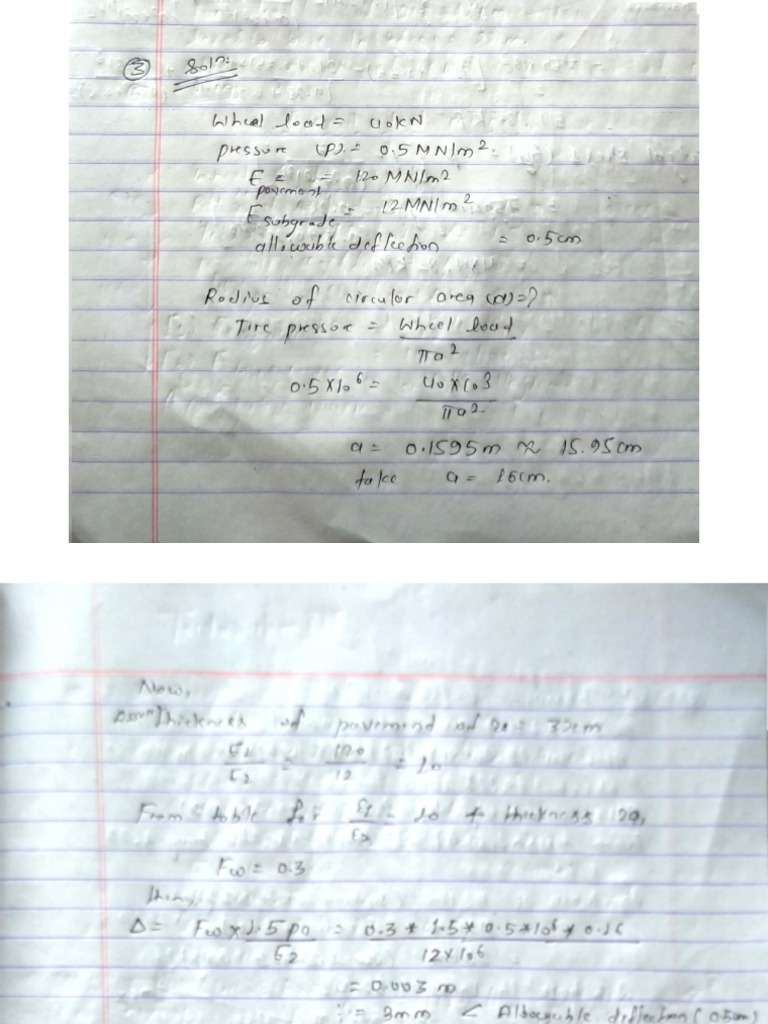 ③ Solⁿ:
Wheel load = 40kN
pressure (P) = 0.5 MN/m².
E pavement = 120 MN/m²
E subgrade = 12 MN/m²
allowable deflection = 0.5cm
Radius of circular area (a) = ?
Tire pressure = Wheel load / πa²
0.5 × 10⁶ = 40 × 10³ / πa²
a = 0.1595m ≈ 15.95cm
take a = 16cm.
Now,
thickness of pavement of 2a = 32cm
E₁/E₂ = 120/12 = 10
From table for E₁/E₂ = 10 + thickness 2a,
Fω = 0.3
then,
Δ = Fω × 1.5 pa / E₂ = 0.3 * 1.5 * 0.5 * 10⁶ * 0.16 / 12 × 10⁶
= 0.003 m
= 3mm < Allowable deflection (0.5cm)